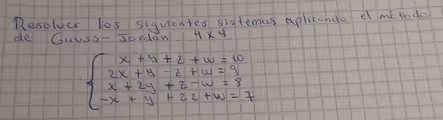 Resolver los siguientes sistemas aplicando el método
de Gauss-Jordan 4x4
x + y + z + w = 10
2x + y - z + w = 9
x + 2y + z - w = 8
-x + y + 2z + w = 7